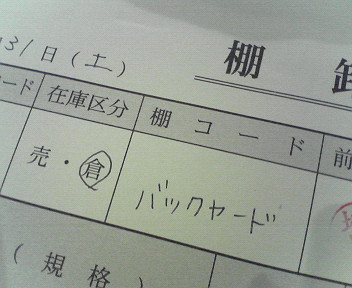 31日(土)
棚卸
ード 在庫区分 棚コード 前
売・倉 バックヤード
(規格)